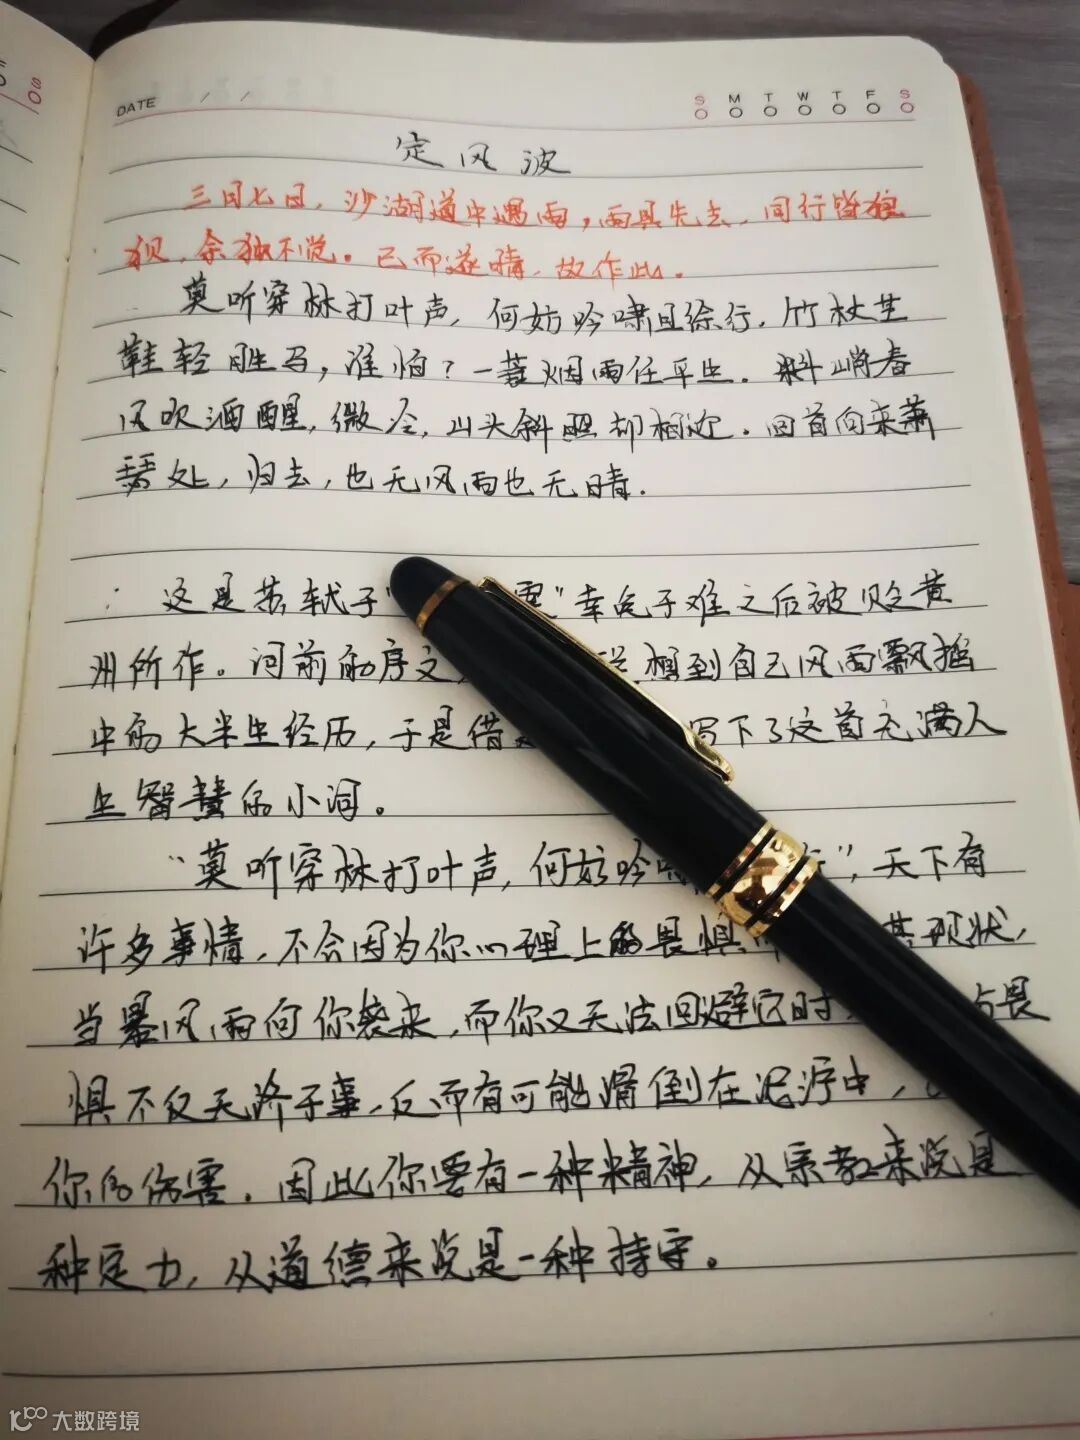 DATE / /
S M T W T F S
定风波
三月七日,沙湖道中遇雨,雨具先去,同行皆狼
狈,余独不觉。已而遂晴,故作此.
莫听穿林打叶声,何妨吟啸且徐行.竹杖芒
鞋轻胜马,谁怕?一蓑烟雨任平生.料峭春
风吹酒醒,微冷,山头斜照却相迎.回首向来萧
瑟处,归去,也无风雨也无晴.
这是苏轼于" "幸免于难之后被贬黄
州所作。词前的序文 想到自己风雨飘摇
中的大半生经历,于是借 写下了这首充满人
生智慧的小词。
"莫听穿林打叶声,何妨吟 ",天下有
许多事情,不会因为你心理上的畏惧 现状,
当暴风雨向你袭来,而你又无法回避它时 畏
惧不仅无济于事,反而有可能滑倒在泥泞中,
你的伤害.因此你要有一种精神,从宗教来说是
种定力,从道德来说是一种持守。
大数跨境